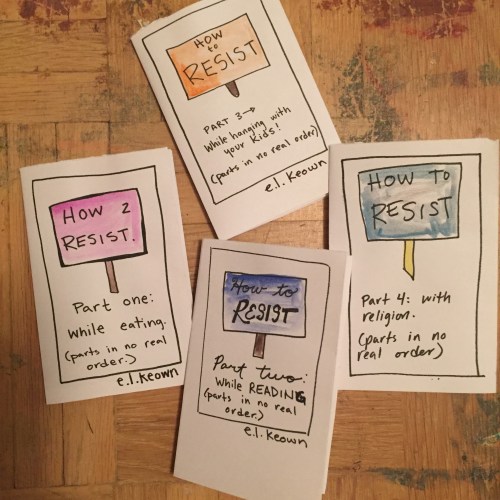 HOW
to
RESIST
PART 3→
While hanging with
your Kids!
(parts in no real order)
e.l. Keown
HOW 2
RESIST.
Part one:
while eating.
(parts in no real
order.)
e.l. Keown
How to
RESIST
Part two:
While READING
(parts in no real
order.)
e.l. Keown
HOW TO
RESIST
Part 4: with
religion.
(parts in no
real order)